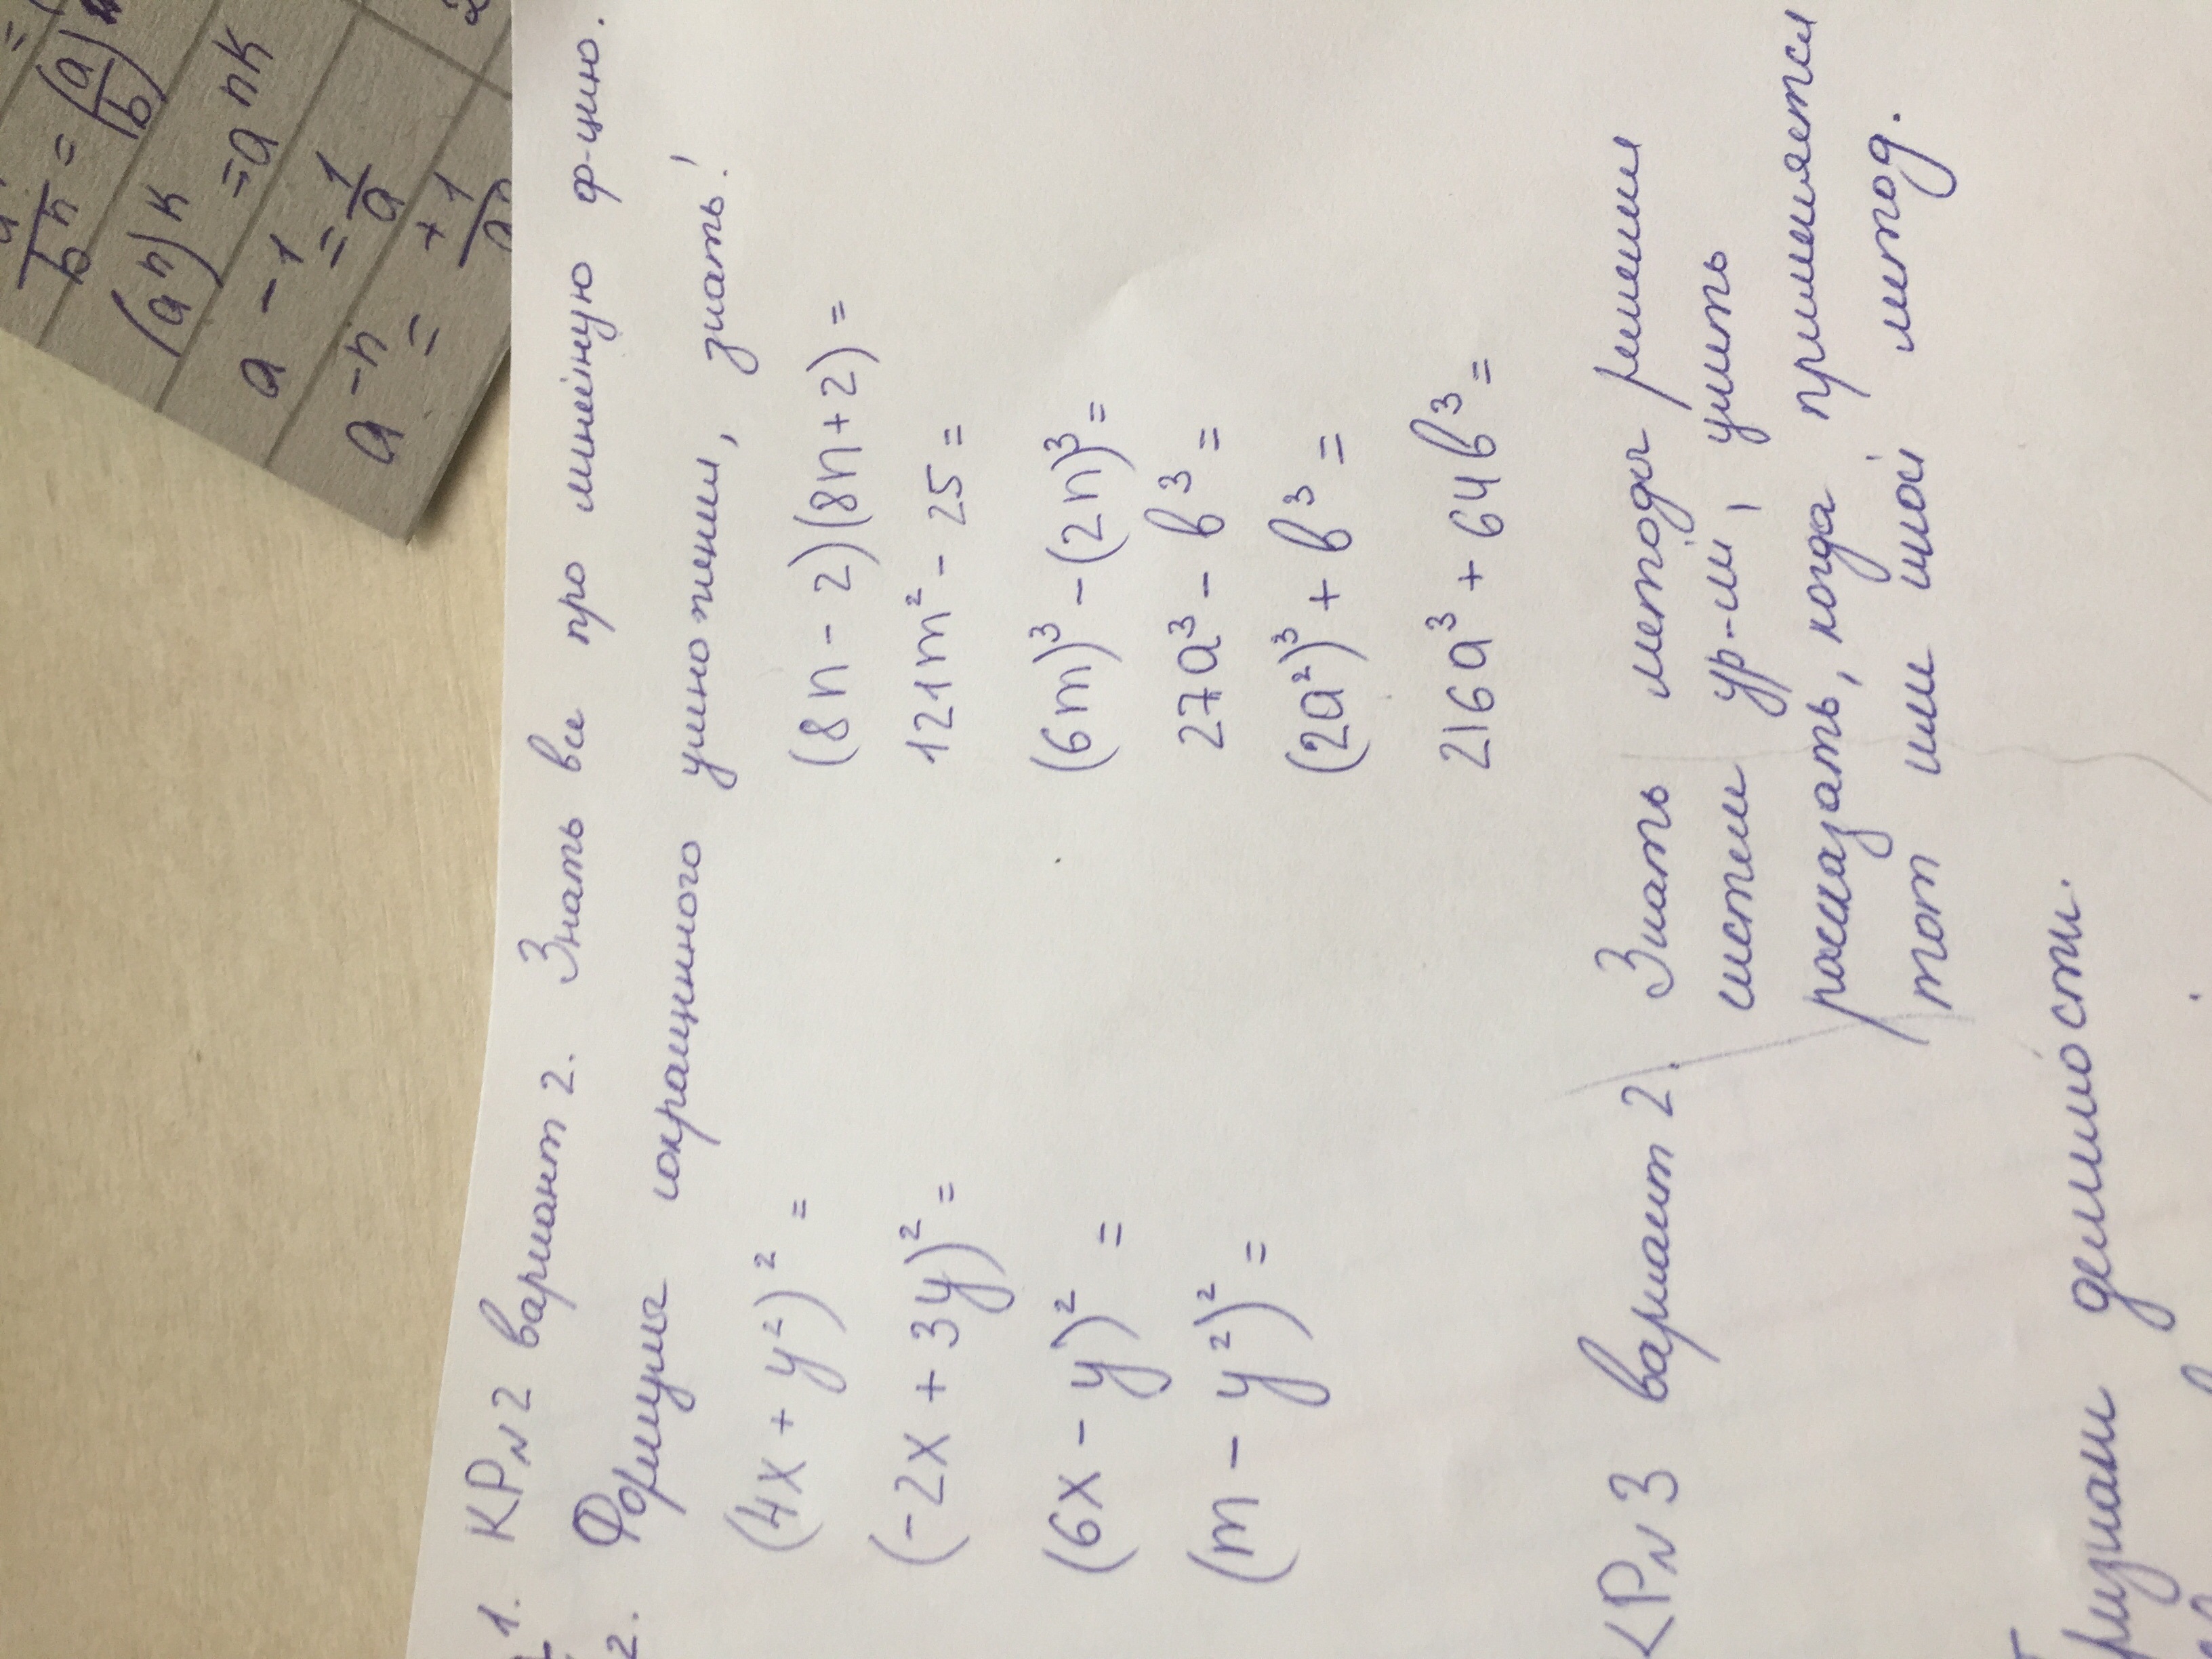 1. КР№2 вариант 2. Знать все про линейную ф-цию.
2. Формулы сокращенного умножения, знать!
(4x + y²)² =
(8n - 2)(8n + 2) =
(-2x + 3y)² =
121m² - 25 =
(6x - y)² =
(6m)³ - (2n)³ =
(m - y²)² =
27a³ - b³ =
(2a²)³ + b³ =
216a³ + 64b³ =
КР№3 вариант 2. Знать методы решения
систем ур-ий, уметь
рассказать, когда применяется
тот или иной метод.
делимости.
= (a/b)
(aⁿ)ᵏ = aⁿᵏ
a⁻¹ = 1/a
a⁻ⁿ =